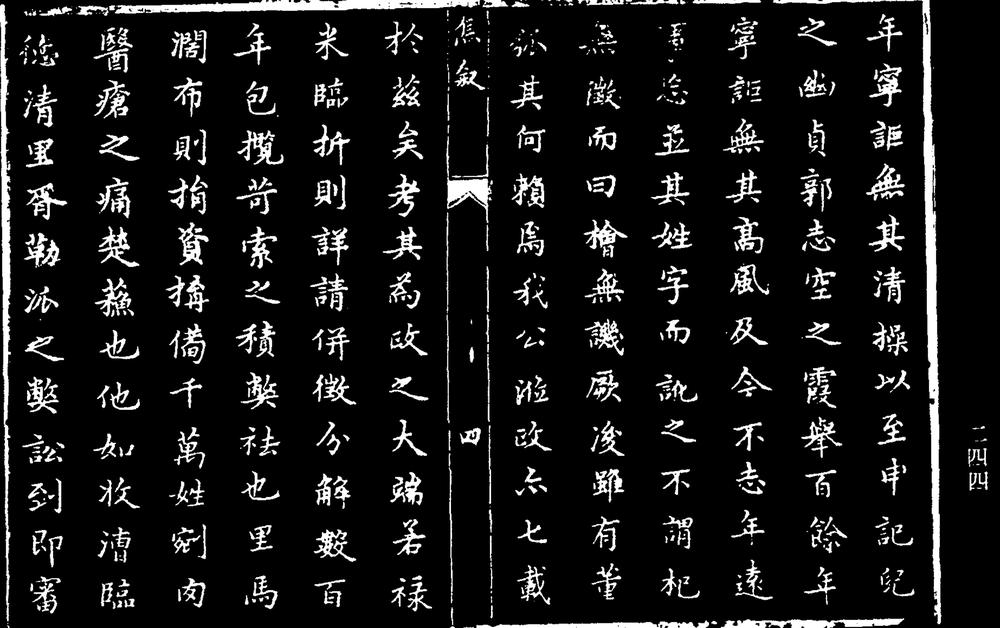 年寧詎無其清操以至申記兒
之幽貞郭志空之霞舉百餘年
寧詎無其高風及今不志年遠
並其姓字而訛之不謂杞
無徵而曰檜無譏厥後雖有董
狐其何賴焉我公涖政亦七載
焦叙
四
於茲矣考其為政之大端若祿
米臨折則詳請併徵分解數百
年包攬苛索之積弊祛也里馬
濶布則捐資搆備千萬姓剜肉
醫瘡之痛楚蘓也他如收漕臨
德清里胥勒派之弊訟到即審
二四四